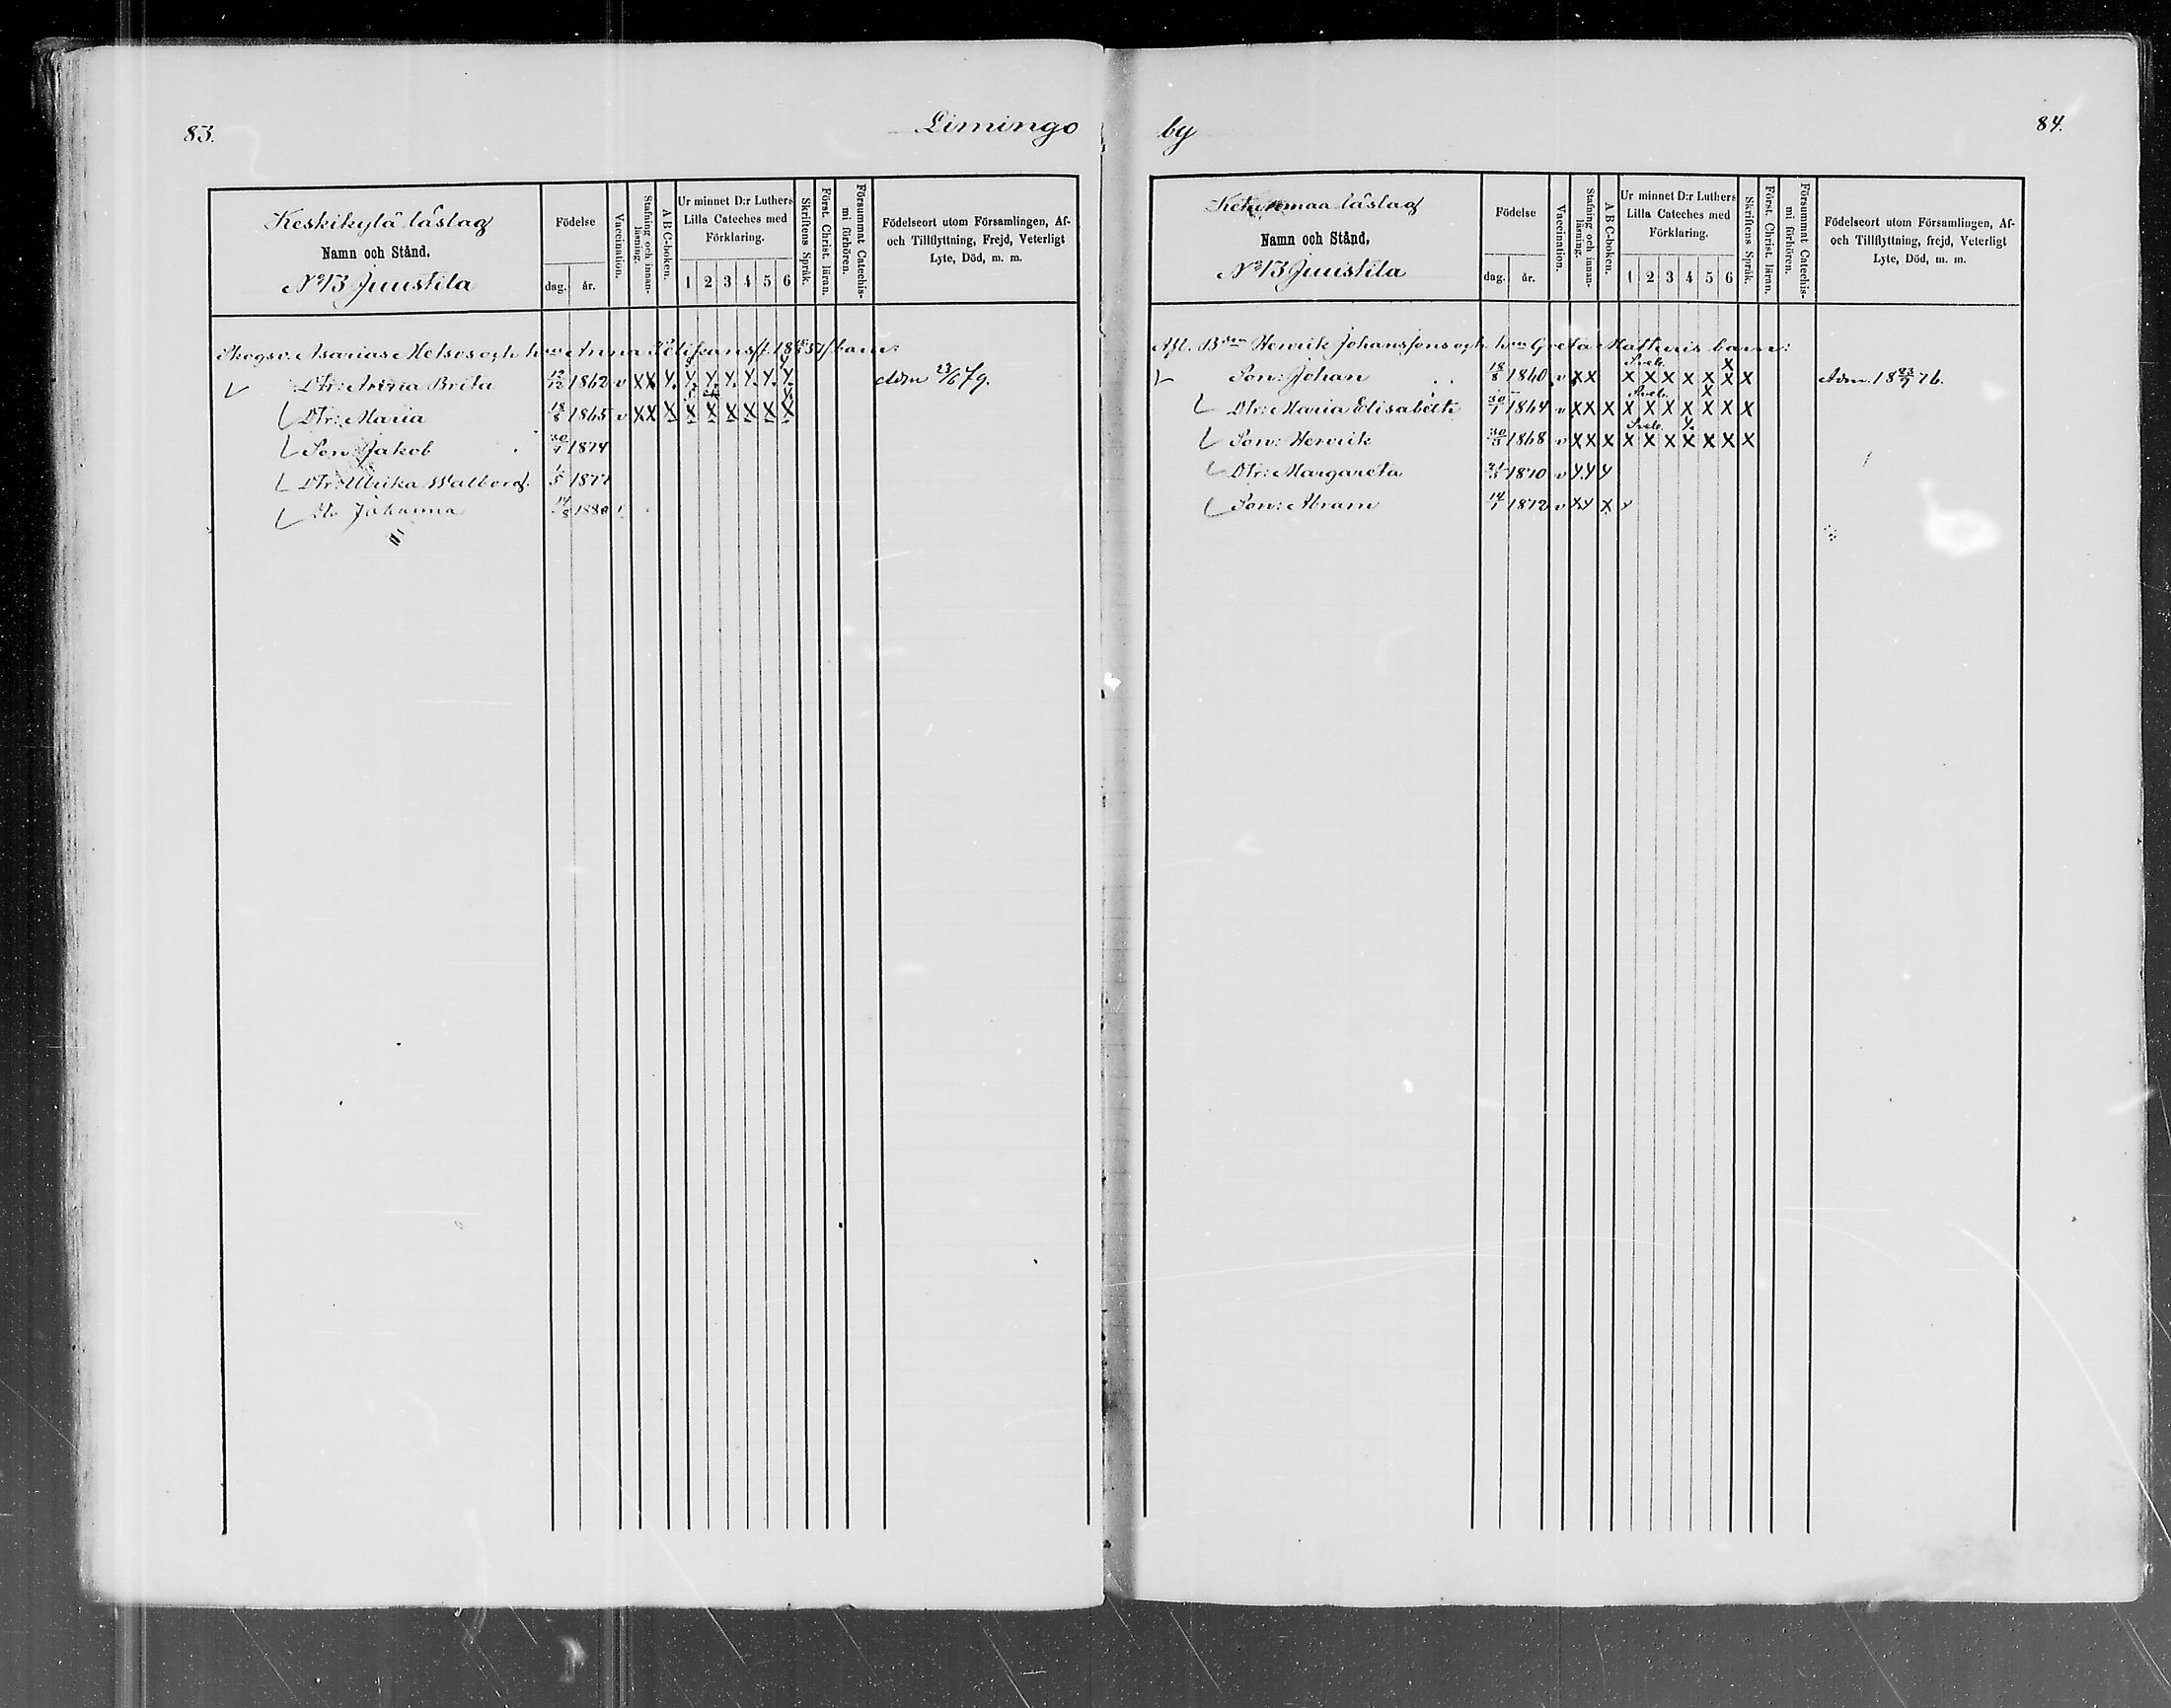 83.
Limingo
Keskikylä läslag
Namn och Stånd.
No 13 Juustila
Födelse
dag.
år.
Vaccination.
Stafning och innan-
läsning.
A B C-boken.
Ur minnet D:r Luthers
Lilla Cateches med
Förklaring.
1 2 3 4 5 6
Skriftens Språk.
Först. Christ. läran.
Försummat Catechis-
mi förhören.
Födelseort utom Församlingen, Af-
och Tillflyttning, Frejd, Veterligt
Lyte, Död, m. m.
Skogsv. Asarias och Anna barn:
Dtr: Anna Brita 12/12 1862 v X X X X X X X X X Adm 23/6 79.
Dtr: Maria 18/8 1865 v X X X X X X X X X
Son: Jakob 30/7 1874
Dtr: Ulrika Walborg. 1/5 1877
Johanna 14/8 1880
by
84.
läslag
Namn och Stånd.
No 13 Juustila
Födelse
dag.
år.
Vaccination.
Stafning och innan-
läsning.
A B C-boken.
Ur minnet D:r Luthers
Lilla Cateches med
Förklaring.
1 2 3 4 5 6
Skriftens Språk.
Först. Christ. läran.
Försummat Catechis-
mi förhören.
Födelseort utom Församlingen, Af-
och Tillflyttning, frejd, Veterligt
Lyte, Död, m. m.
Afl. Bden Henrik Johanssons och hun Greta Mathuis barn:
Son: Johan 18/8 1860 v X X X X X X X X X Adm. 18 23/7 76.
Dtr: Maria Elisabeth 30/1 1864 v X X X X X X X X X X
Son: Henrik 30/3 1868 v X X X X X X X X X X
Dtr: Margareta 21/3 1870 v X X X
Son: Abram 14/1 1872 v X X X X